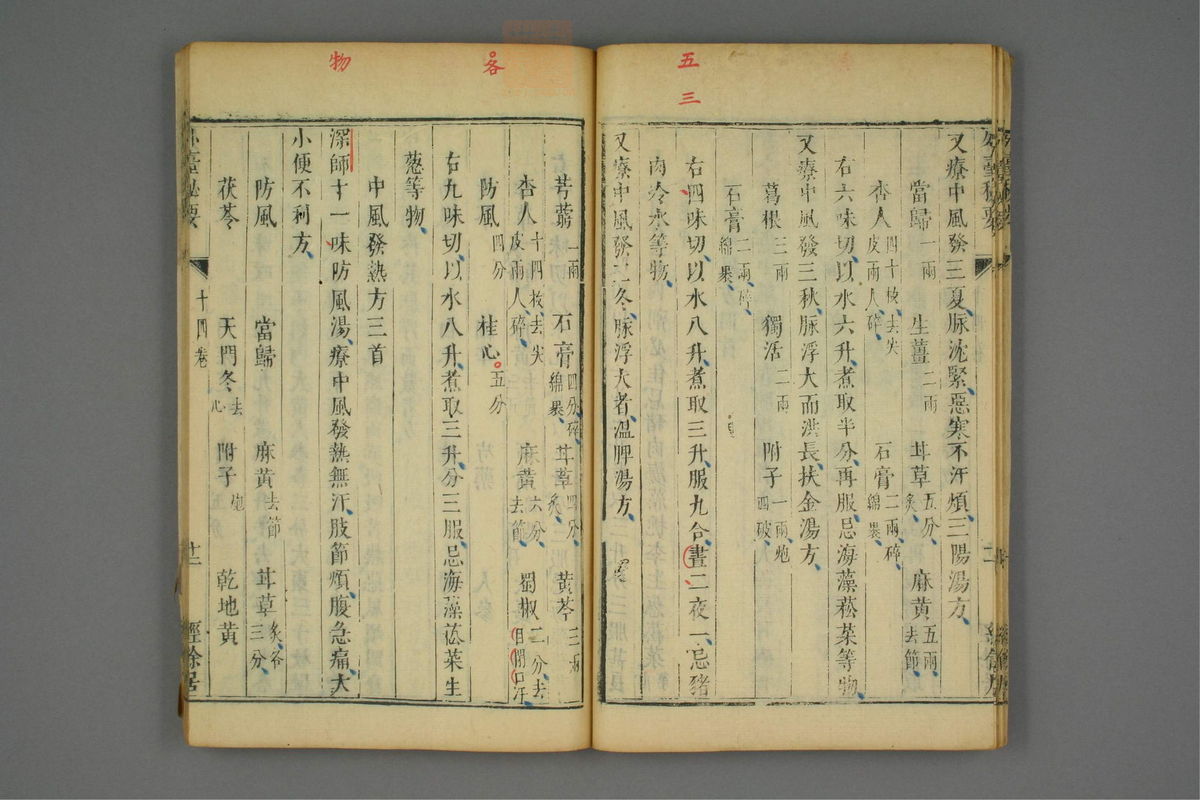 五三
又療中風發三夏脉沈緊惡寒不汗煩三陽湯方
當歸一兩 生薑二兩 甘草五分炙 麻黄五兩去節
杏人四十枚去尖皮兩人碎 石膏二兩碎綿裹
右六味切以水六升煮取半分再服忌海藻菘菜等物
又療中風發三秋脉浮大而洪長扶金湯方
葛根三兩 獨活二兩 附子一兩炮四破
石膏二兩碎綿裹
右四味切以水八升煮取三升服九合晝二夜一忌豬
肉冷水等物
又療中風發三冬脉浮大者溫脾湯方
各
物
芎藭一兩 石膏四分碎綿裹 甘草四分炙 黄芩三兩
杏人十四枚去尖皮兩人碎 麻黄六分去節 蜀椒二分去目閉口汗
防風四分 桂心五分
右九味切以水八升煮取三升分三服忌海藻菘菜生
葱等物
中風發熱方三首
深師十一味防風湯療中風發熱無汗肢節煩腹急痛大
小便不利方
防風 當歸 麻黄去節 甘草炙各三分
茯苓 天門冬去心 附子炮 乾地黄
外臺秘要 十四卷 十二 經餘居